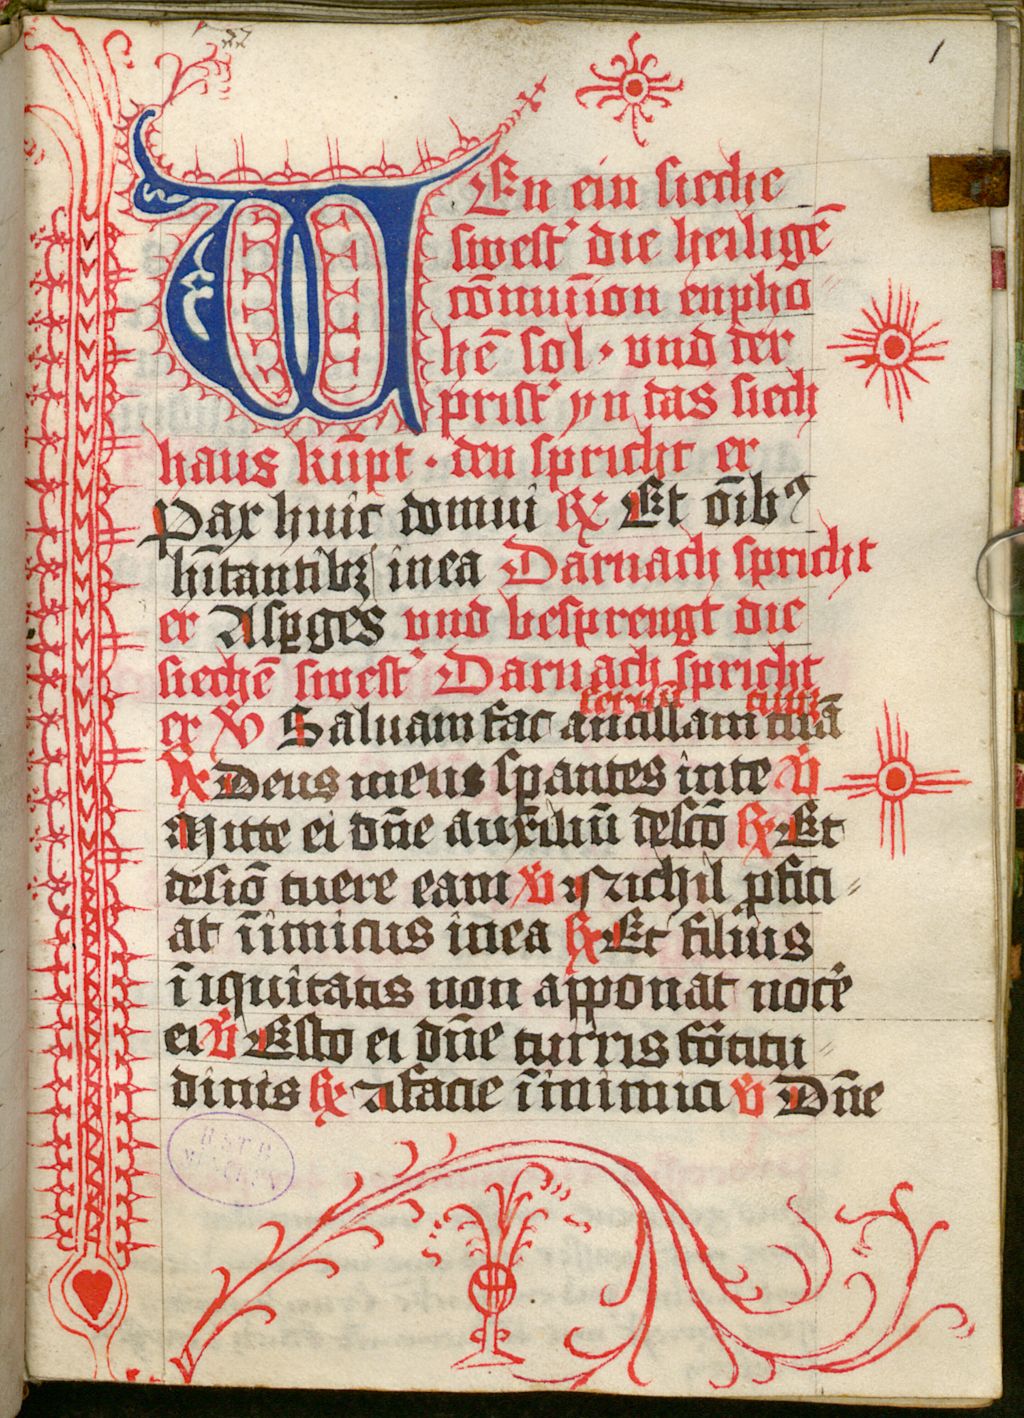 1
WEn ein sieche
swest' die heiligē
cōmuīon enpha
hē sol · vnd der
prist' yn das siech
haus kūpt · den spricht er
Pax huic domui ℟ Et oīb9
hītantibꝫ in ea Darnach spricht
er Asꝑges vnd besprengt die
siechē swest' Darnach spricht
seruū tuū
er ℣ Saluam fac ancillam tuā
℟ Deus meus sꝑantes in te ℣
Mitte ei dn̄e auxiliū de scō ℟ Et
de siō tuere eam ℣ Nichil ꝓfici
at īimicus in ea ℟ Et filius
īiquitatis non apponat nocē
ei ℣ Esto ei dn̄e turris fōtitu
dinis ℟ A facie īimici ℣ Dn̄e